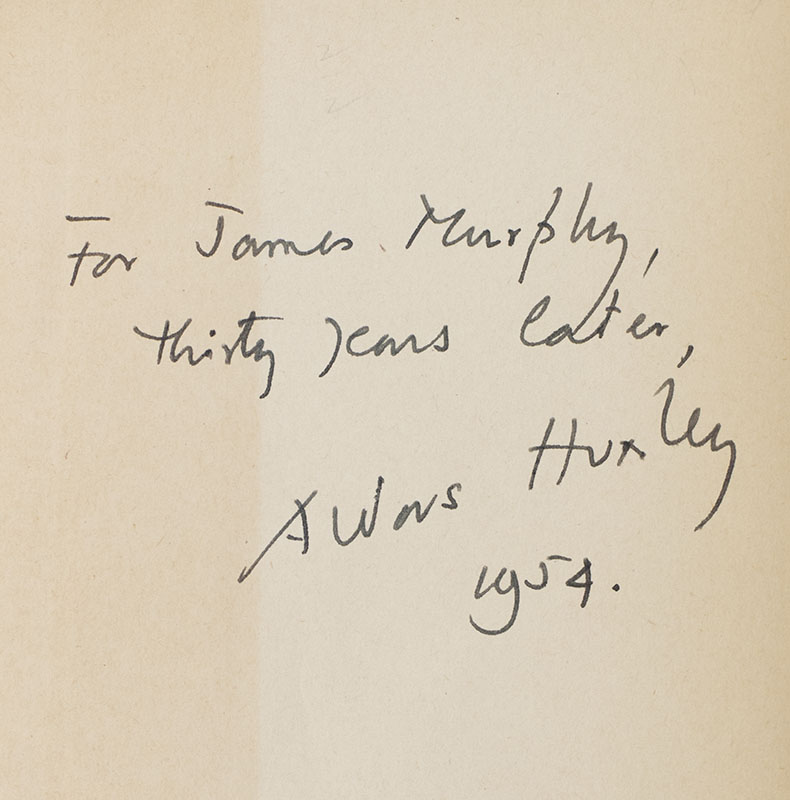 For James Murphy,
thirty years later,
Aldous Huxley
1954.